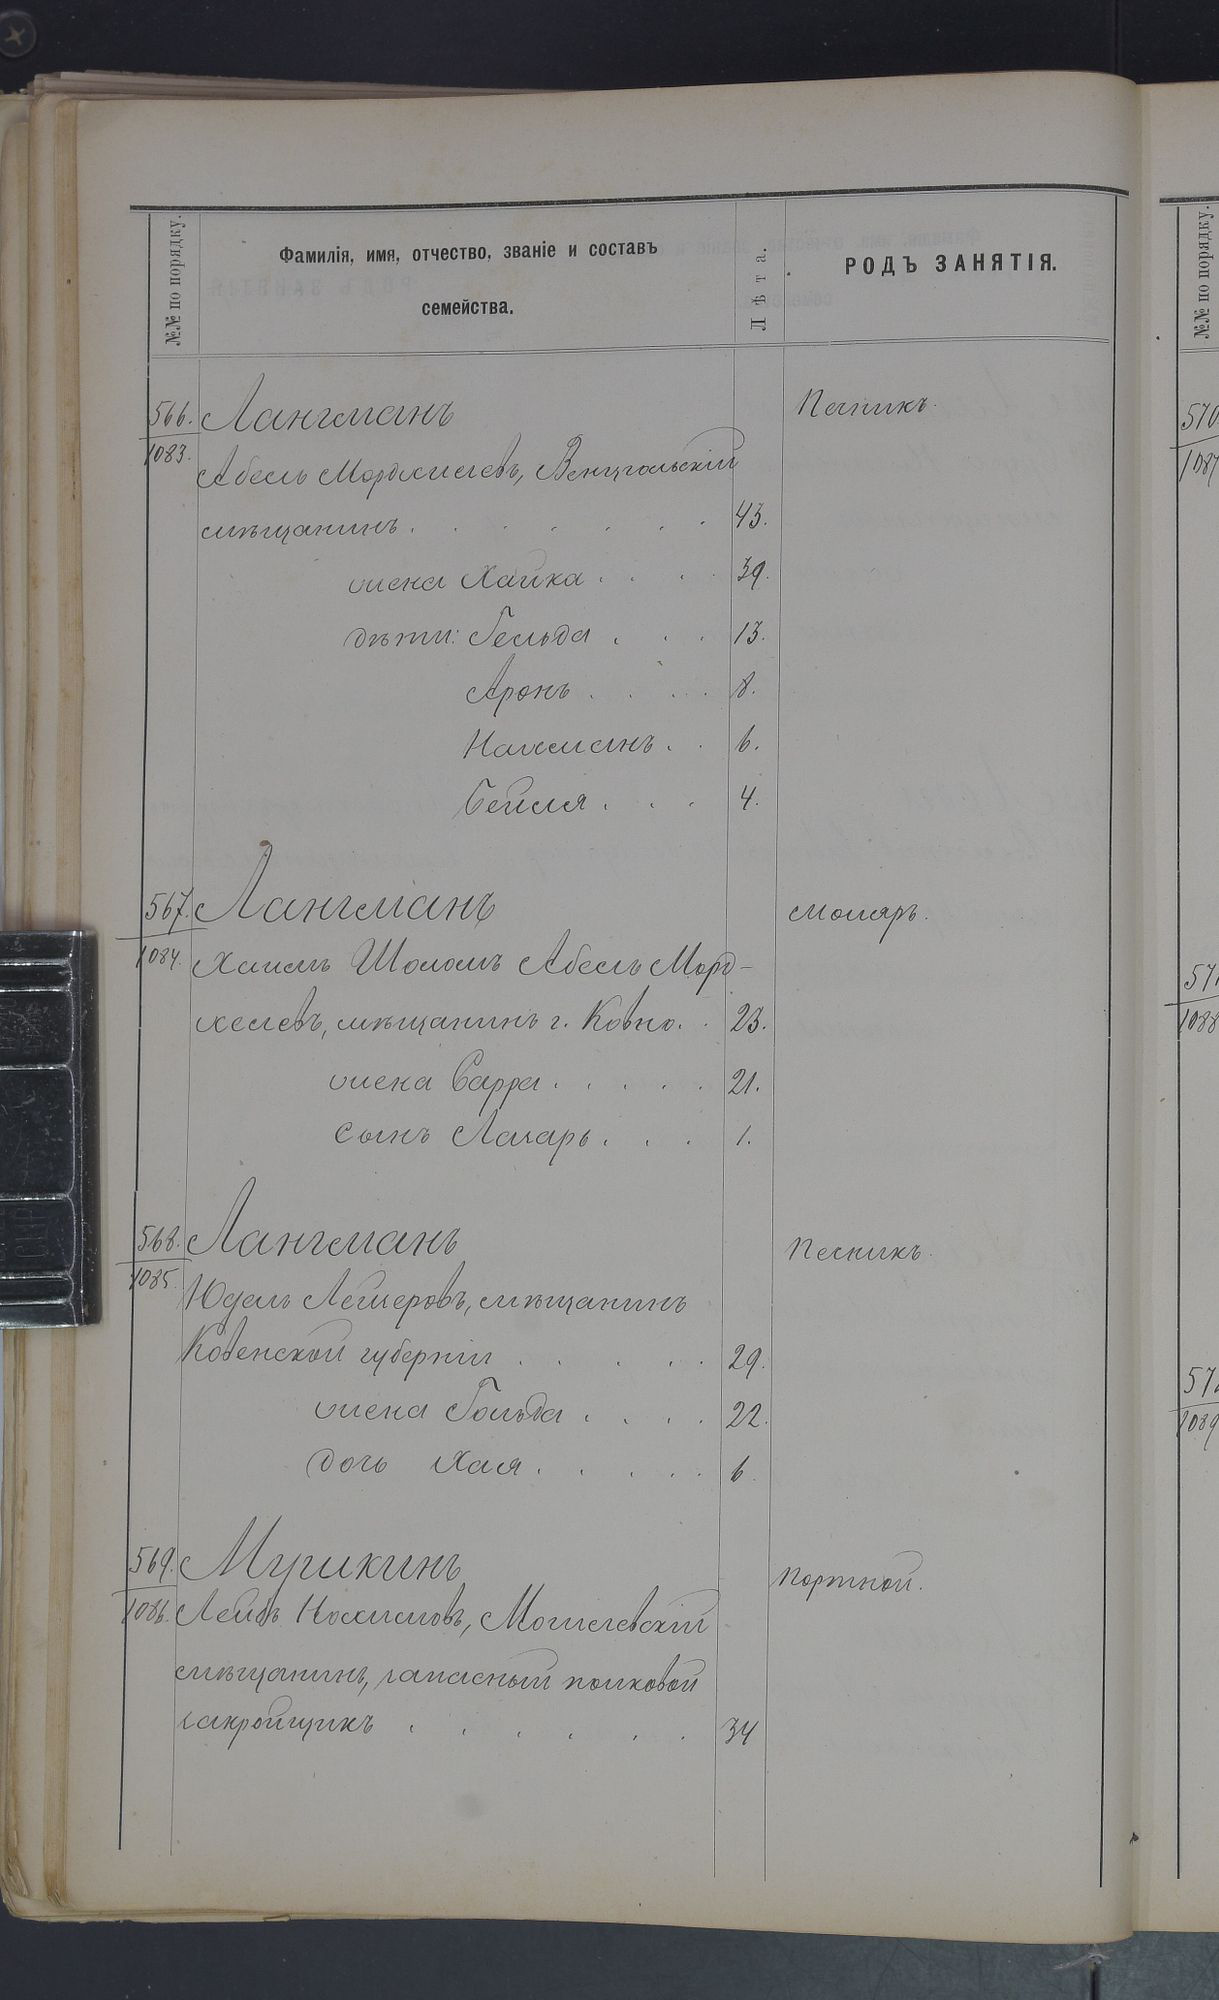 №№ по порядку.
Фамилія, имя, отчество, званіе и составъ
семейства.
Лѣта.
РОДЪ ЗАНЯТІЯ.
566. Лангманъ Печникъ.
1083.
Абель Мордхелевъ, Венцгольскій
мѣщанинъ . . . . . . 43.
жена Хайка . . . . 39.
дѣти: Гельда . . . 13.
Аронъ . . . . 8.
Нахманъ . . 6.
Бейля . . . 4.
567. Лангманъ Моляръ.
1084.
Хаимъ Шоломъ Абель Морд-
хелевъ, мѣщанинъ г. Ковно. . 23.
жена Сарра . . . . . 21.
сынъ Лазарь . . . 1.
568. Лангманъ Печникъ.
1085.
Юдель Лейзеровъ, мѣщанинъ
Ковенской губерніи . . . . . 29.
жена Гольда . . . . 22.
дочь Хая . . . . . 6.
569. Мушкинъ Портной.
1086.
Лейбъ Нохимовъ, Могилевскій
мѣщанинъ, запасный полковой
закройщикъ . . . . . . 34
№№ по порядку.
570
1087
571
1088
572
1089